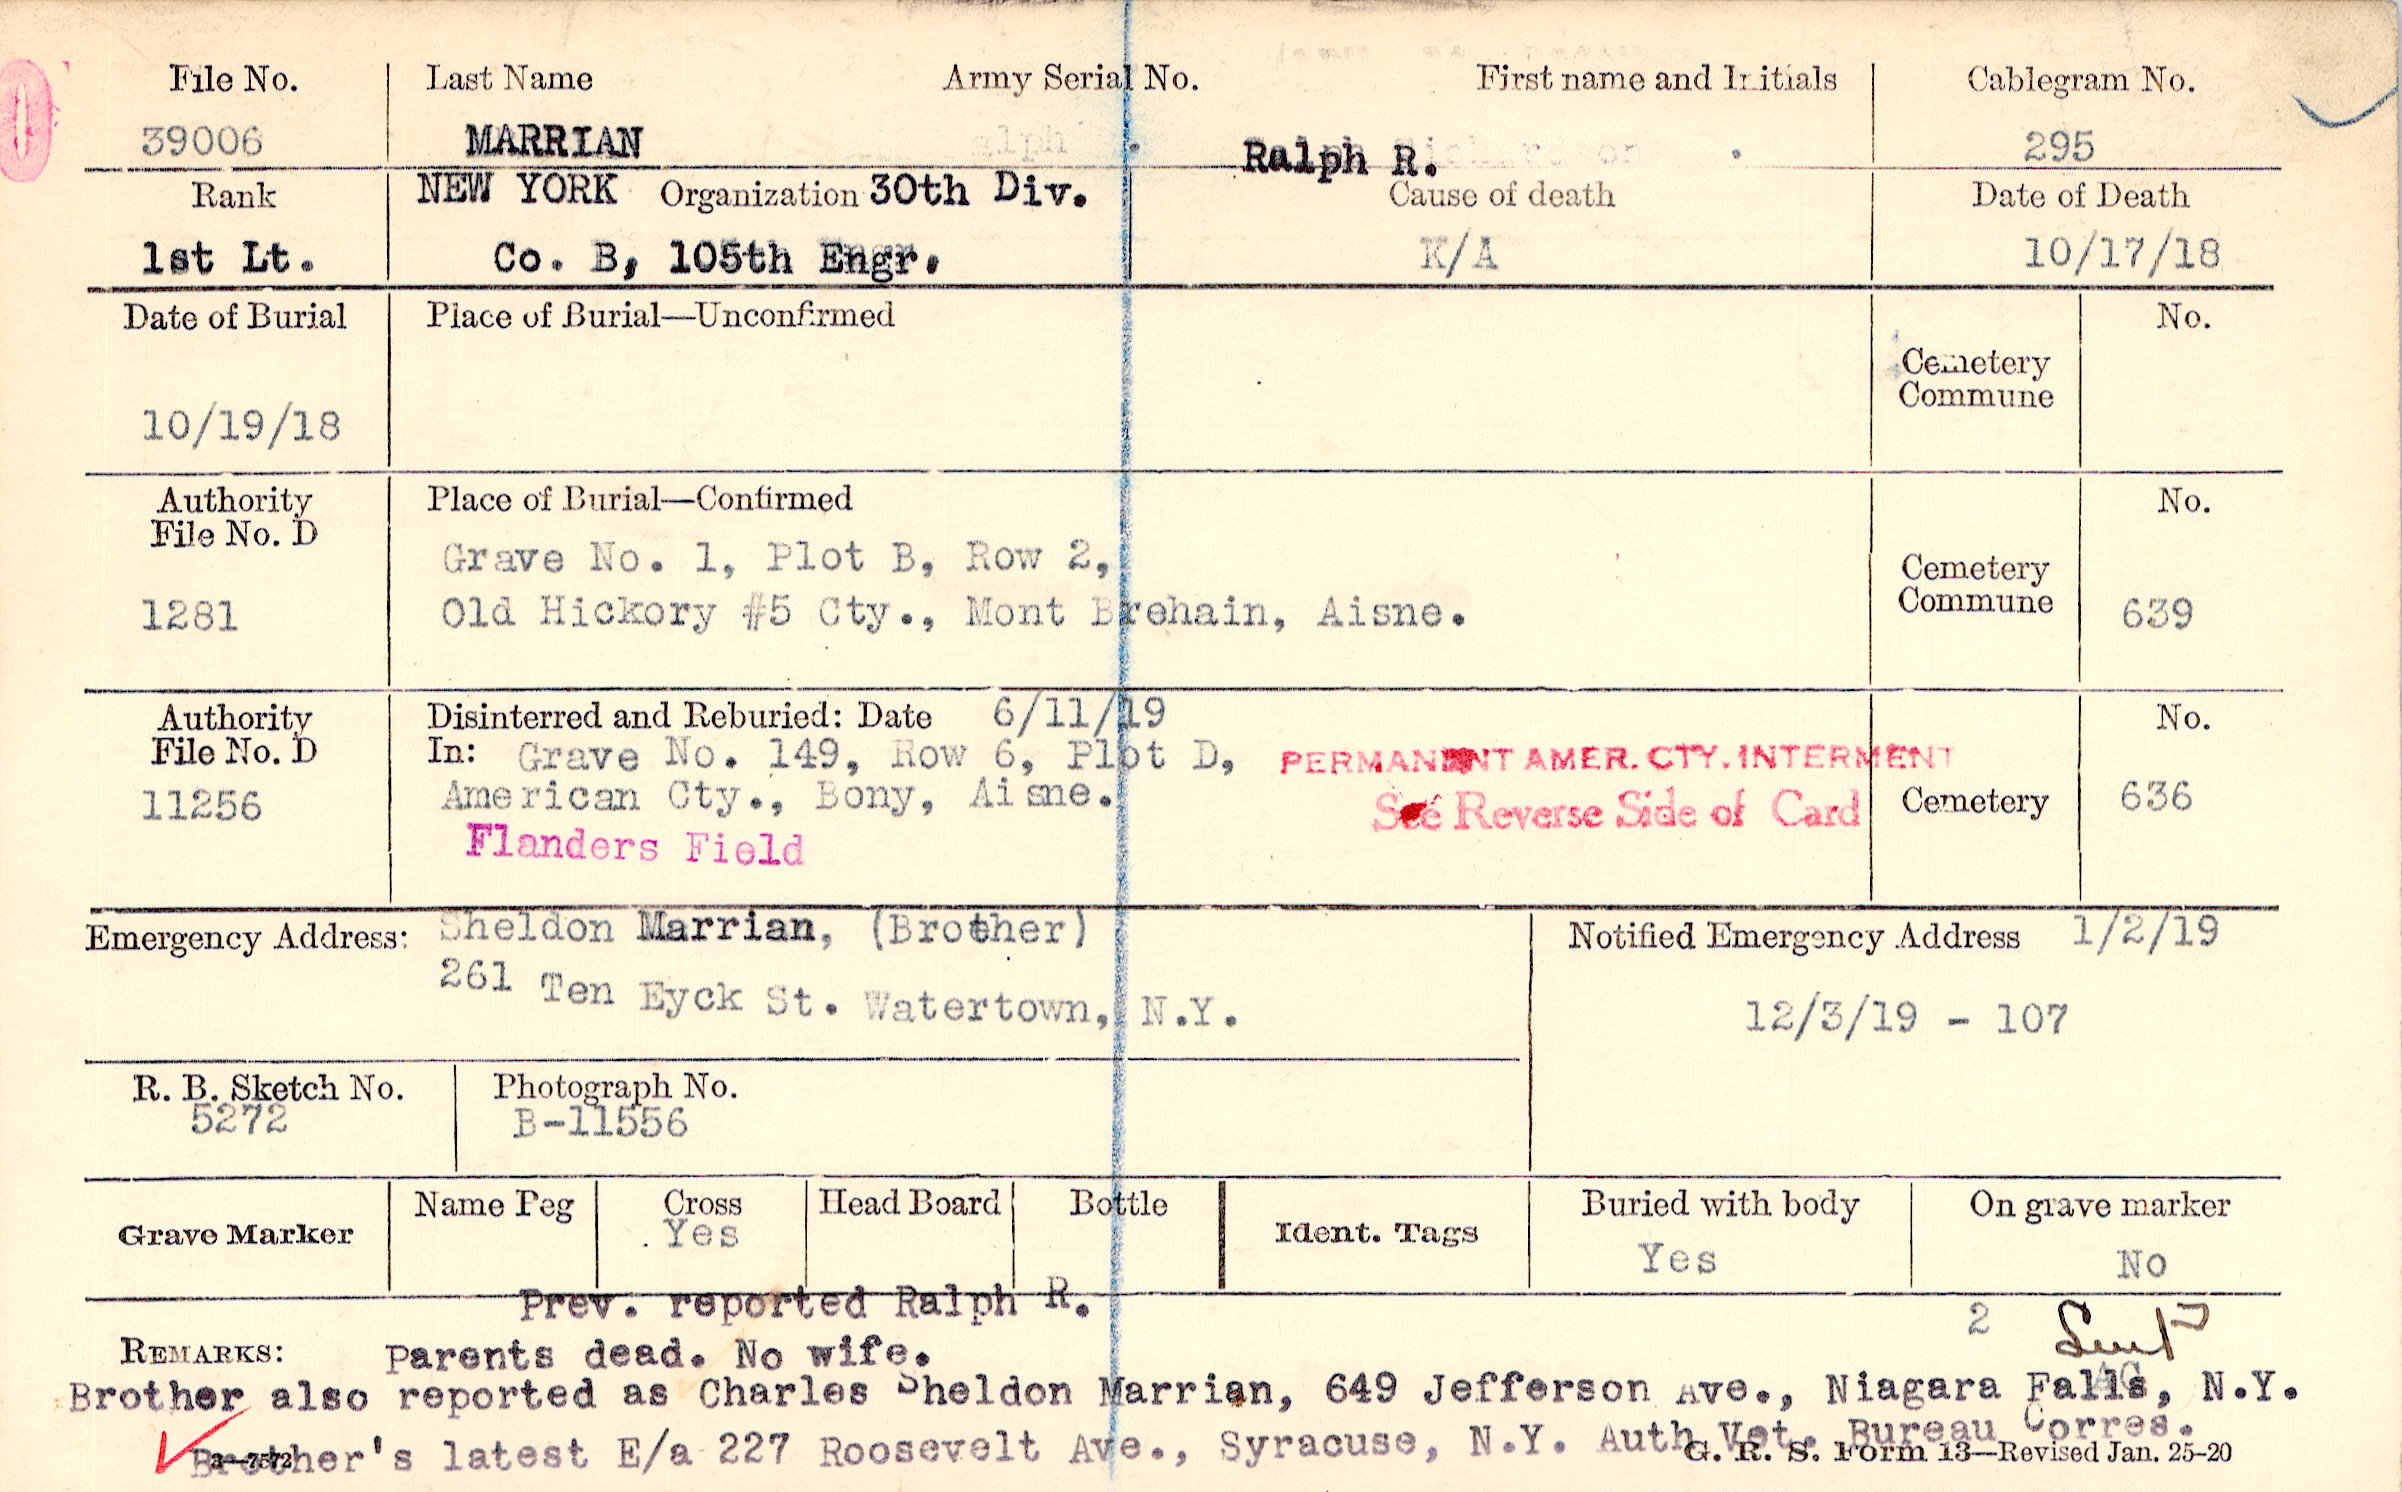 File No. Last Name Army Serial No. First name and Initials Cablegram No.
39006 MARRIAN Ralph R. 295
Rank NEW YORK Organization 30th Div. Cause of death Date of Death
1st Lt. Co. B, 105th Engr. K/A 10/17/18
Date of Burial Place of Burial—Unconfirmed No.
Cemetery
Commune
10/19/18
Authority Place of Burial—Confirmed No.
File No. D
Grave No. 1, Plot B, Row 2, Cemetery
1281 Old Hickory #5 Cty., Mont Brehain, Aisne. Commune 639
Authority Disinterred and Reburied: Date 6/11/19 No.
File No. D In: Grave No. 149, Row 6, Plot D, PERMANENT AMER. CTY. INTERMENT
11256 American Cty., Bony, Aisne. See Reverse Side of Card Cemetery 636
Flanders Field
Emergency Address: Sheldon Marrian, (Brother) Notified Emergency Address 1/2/19
261 Ten Eyck St. Watertown, N.Y. 12/3/19 - 107
R. B. Sketch No. Photograph No.
5272 B-11556
Grave Marker Name Peg Cross Head Board Bottle Ident. Tags Buried with body On grave marker
Yes Yes No
Prev. reported Ralph R. 2
REMARKS: Parents dead. No wife.
Brother also reported as Charles Sheldon Marrian, 649 Jefferson Ave., Niagara Falls, N.Y.
Brother's latest E/a 227 Roosevelt Ave., Syracuse, N.Y. Auth Vet. Bureau Corres.
G. R. S. Form 13—Revised Jan. 25-20